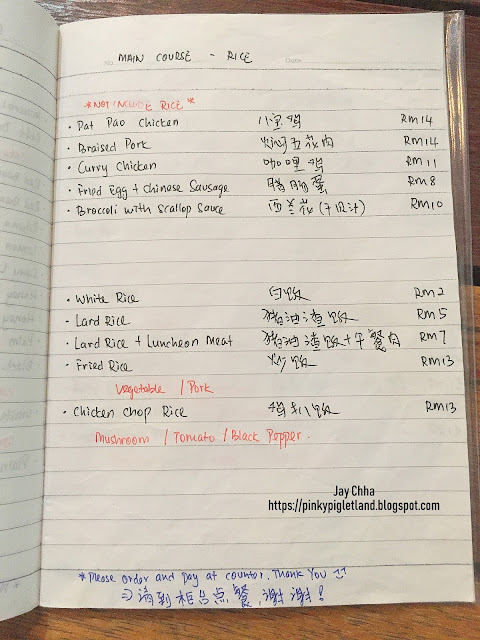 No.
Date
MAIN COURSE - RICE
*NOT INCLUDE RICE*
• Pat Pao Chicken 八宝鸡 RM14
• Braised Pork 焖五花肉 RM14
• Curry Chicken 咖哩鸡 RM11
• Fried Egg + Chinese Sausage 腊肠蛋 RM8
• Broccoli with Scallop Sauce 西兰花 (干贝汁) RM10
• White Rice 白饭 RM2
• Lard Rice 猪油渣饭 RM5
• Lard Rice + Luncheon Meat 猪油渣饭+午餐肉 RM7
• Fried Rice 炒饭 RM13
Vegetable / Pork
• Chicken Chop Rice 鸡扒饭 RM13
Mushroom / Tomato / Black Pepper.
Jay Chha
https://pinkypigletland.blogspot.com
*Please order and pay at counter. Thank You
请到柜台点餐,谢谢!